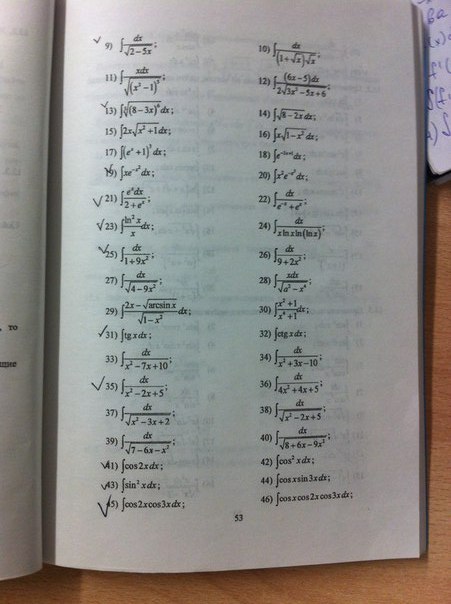 9) ∫ dx / √(2−5x) ;
10) ∫ dx / ((1+√x)√x) ;
11) ∫ xdx / √((x²−1)⁵) ;
12) ∫ (6x−5)dx / (2√(3x²−5x+6)) ;
13) ∫ ∜((8−3x)⁶) dx ;
14) ∫ √(8−2x) dx ;
15) ∫ 2x√(x²+1) dx ;
16) ∫ x√(1−x²) dx ;
17) ∫ (eˣ+1)³ dx ;
18) ∫ e^(−2x+1) dx ;
19) ∫ xe^(−x²) dx ;
20) ∫ x²e^(−x³) dx ;
21) ∫ eˣdx / (2+eˣ) ;
22) ∫ dx / (e⁻ˣ+eˣ) ;
23) ∫ ln²x / x dx ;
24) ∫ dx / (x ln x ln(ln x)) ;
25) ∫ dx / (1+9x²) ;
26) ∫ dx / (9+2x²) ;
27) ∫ dx / √(4−9x²) ;
28) ∫ xdx / √(a²−x⁴) ;
29) ∫ (2x−√(arcsin x)) / √(1−x²) dx ;
30) ∫ (x²+1) / (x⁴+1) dx ;
31) ∫ tg x dx ;
32) ∫ ctg x dx ;
33) ∫ dx / (x²−7x+10) ;
34) ∫ dx / (x²+3x−10) ;
35) ∫ dx / (x²−2x+5) ;
36) ∫ dx / (4x²+4x+5) ;
37) ∫ dx / √(x²−3x+2) ;
38) ∫ dx / √(x²−2x+5) ;
39) ∫ dx / √(7−6x−x²) ;
40) ∫ dx / √(8+6x−9x²) ;
41) ∫ cos2x dx ;
42) ∫ cos²x dx ;
43) ∫ sin²x dx ;
44) ∫ cosx sin3x dx ;
45) ∫ cos2x cos3x dx ;
46) ∫ cosx cos2x cos3x dx ;
53
то
щие